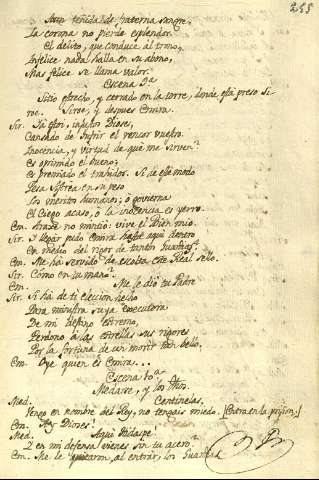 245
Aun teñida de paterna sangre,
La corona no pierde esplendor.
El delito, que conduce al trono,
Infelice nada halla en su abono,
Mas felice se llama valor.
Escena 9ª
Sitio estrecho, y cerrado en la torre, donde está preso Si
roe. Siroe, y despues Emira.
Sir. injustos Dioses,
Cansado de sufrir el rencor vuestro.
Inocencia, y virtud de qué me sirven?
Es oprimido el bueno;
Es premiado el traidor. Si de este modo
Pesa Astrea en su peso
Los meritos humanos; ó govierna
El Ciego acaso, ó la inocencia es yerro.
Em. no mintió: vive el Bien mio.
Sir. Y llegar pudo Emira hasta aqui dentro
En medio del rigor de tantas Guardias?
Em. Me há servido de escolta este Real sello.
Sir. Cómo en tu mano?
Em. Me le dió tu Padre
Sir. Si há de ti eleccion hecho
Para ministra suya executora
De mi destino extremo,
Perdono á las estrellas sus rigores
Por la fortuna de un morir tan bello.
Em. Oye quien es Emira...
Escena 10ª
Medarse, y los dhos.
Med. Centinelas,
Vengo en nombre del Rey, no tengais miedo. [Entra en la prision.]
Em. Ay Dioses!
Med. Aqui Hidaspe
Y en mi defensa vienes sin tu acero?
Em. Me le quitaron, al entrar, los Guardas